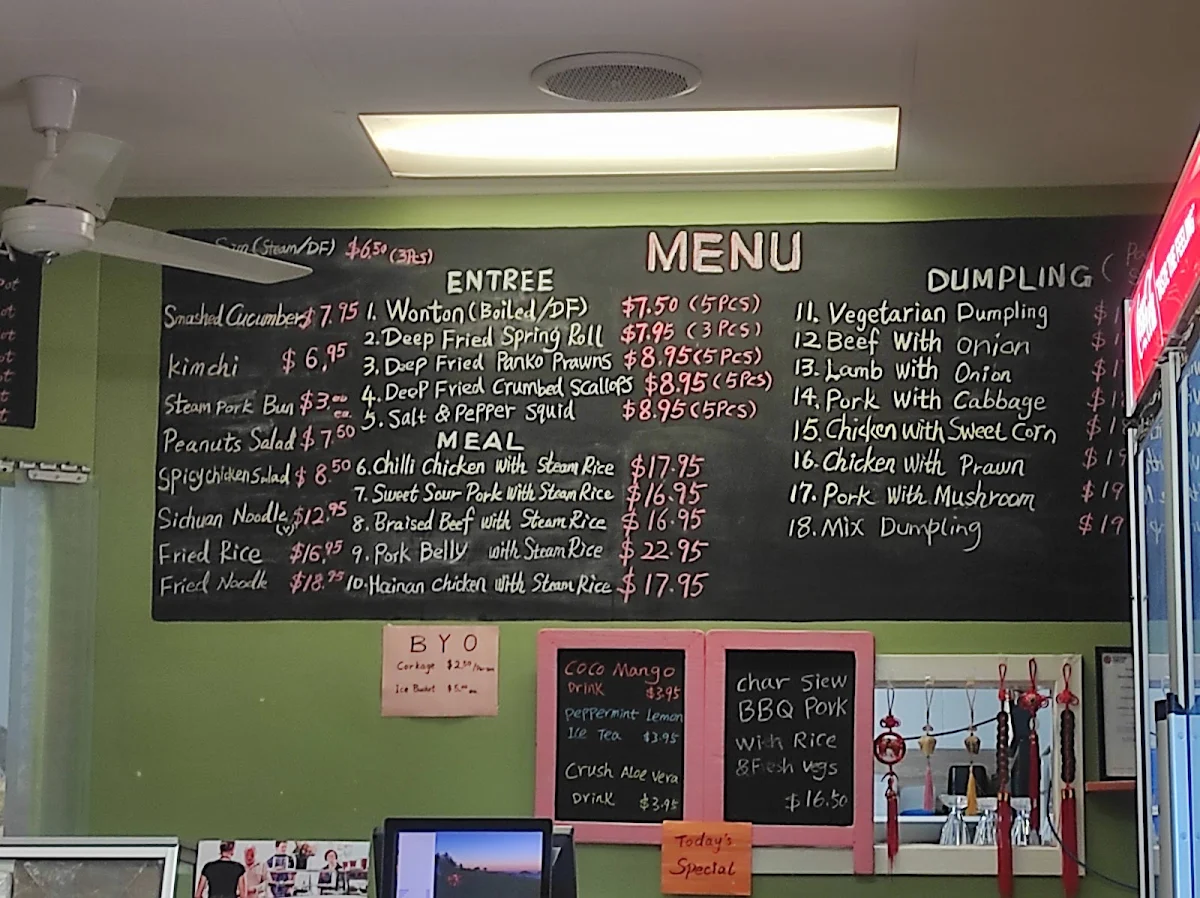 (Steam/DF) $6.50 (3Pcs)
MENU
Smashed Cucumber $7.95
kimchi $6.95
Steam Pork Bun $3.00 ea.
Peanuts Salad $7.50
Spicy Chicken Salad $8.50
Sichuan Noodle (V) $12.95
Fried Rice $16.95
Fried Noodle $18.95
ENTREE
1. Wonton (Boiled/DF) $7.50 (5Pcs)
2. Deep Fried Spring Roll $7.95 (3Pcs)
3. Deep Fried Panko Prawns $8.95 (5Pcs)
4. Deep Fried Crumbed Scallops $8.95 (5Pcs)
5. Salt & Pepper Squid $8.95 (5Pcs)
MEAL
6. Chilli Chicken with Steam Rice $17.95
7. Sweet Sour Pork with Steam Rice $16.95
8. Braised Beef with Steam Rice $16.95
9. Pork Belly with Steam Rice $22.95
10. Hainan Chicken with Steam Rice $17.95
DUMPLING (
11. Vegetarian Dumpling $1
12. Beef With Onion
13. Lamb With Onion
14. Pork With Cabbage
15. Chicken with Sweet Corn
16. Chicken With Prawn $19
17. Pork With Mushroom $19
18. Mix Dumpling $19
BYO
Corkage $2.50
Ice Bucket
Coco Mango
Drink $3.95
Peppermint Lemon
Ice Tea $3.95
Crush Aloe vera
Drink $3.95
Char Siew
BBQ Pork
With Rice
& Fresh Vegs
$16.50
Today's
Special